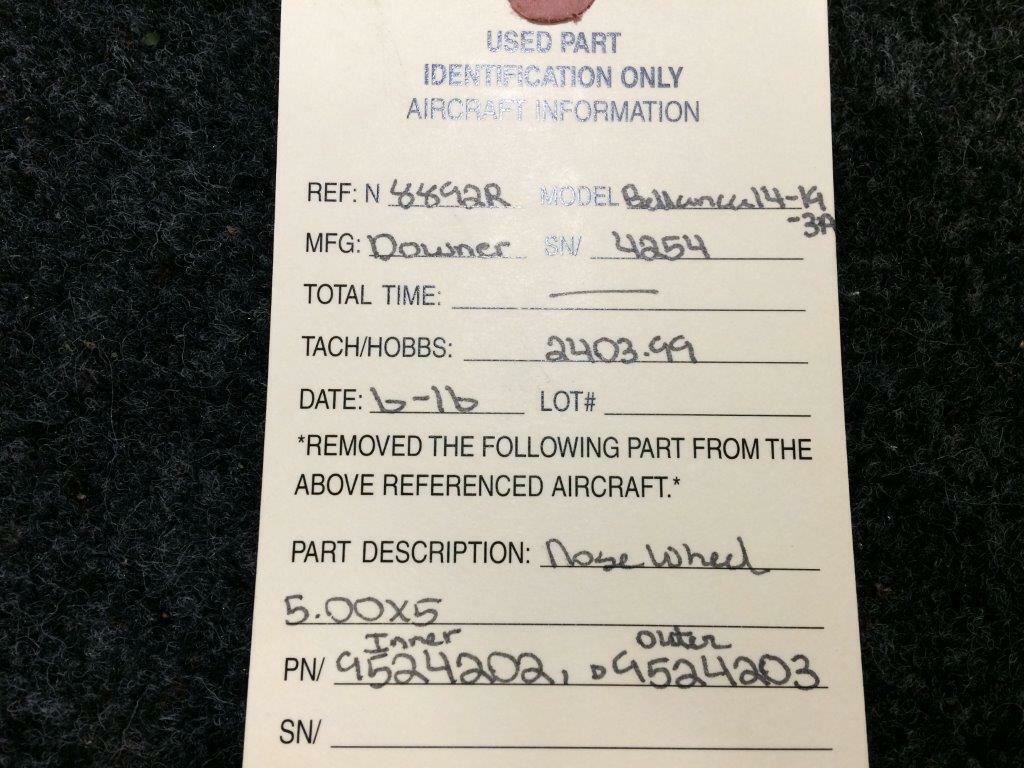 USED PART
IDENTIFICATION ONLY
AIRCRAFT INFORMATION
REF: N 8892R MODEL Bellanca 14-19
-3A
MFG: Downer SN/ 4254
TOTAL TIME: —
TACH/HOBBS: 2403.99
DATE: 6-16 LOT#
*REMOVED THE FOLLOWING PART FROM THE
ABOVE REFERENCED AIRCRAFT.*
PART DESCRIPTION: Nose Wheel
5.00X5
Inner Outer
PN/ 9524202, 9524203
SN/